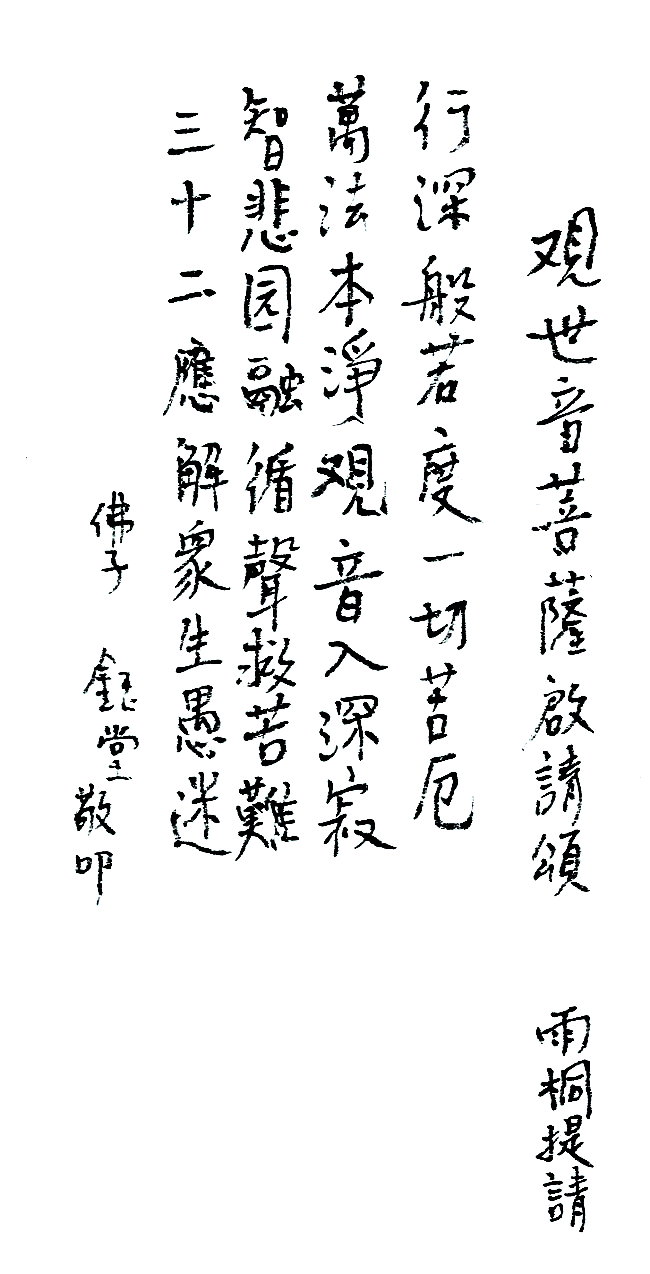 观世音菩薩啟請頌 雨桐提請
行深般若度一切苦厄
萬法本淨观音入深寂
智悲园融循聲救苦難
三十二應解眾生愚迷
佛子 鈺堂敬叩